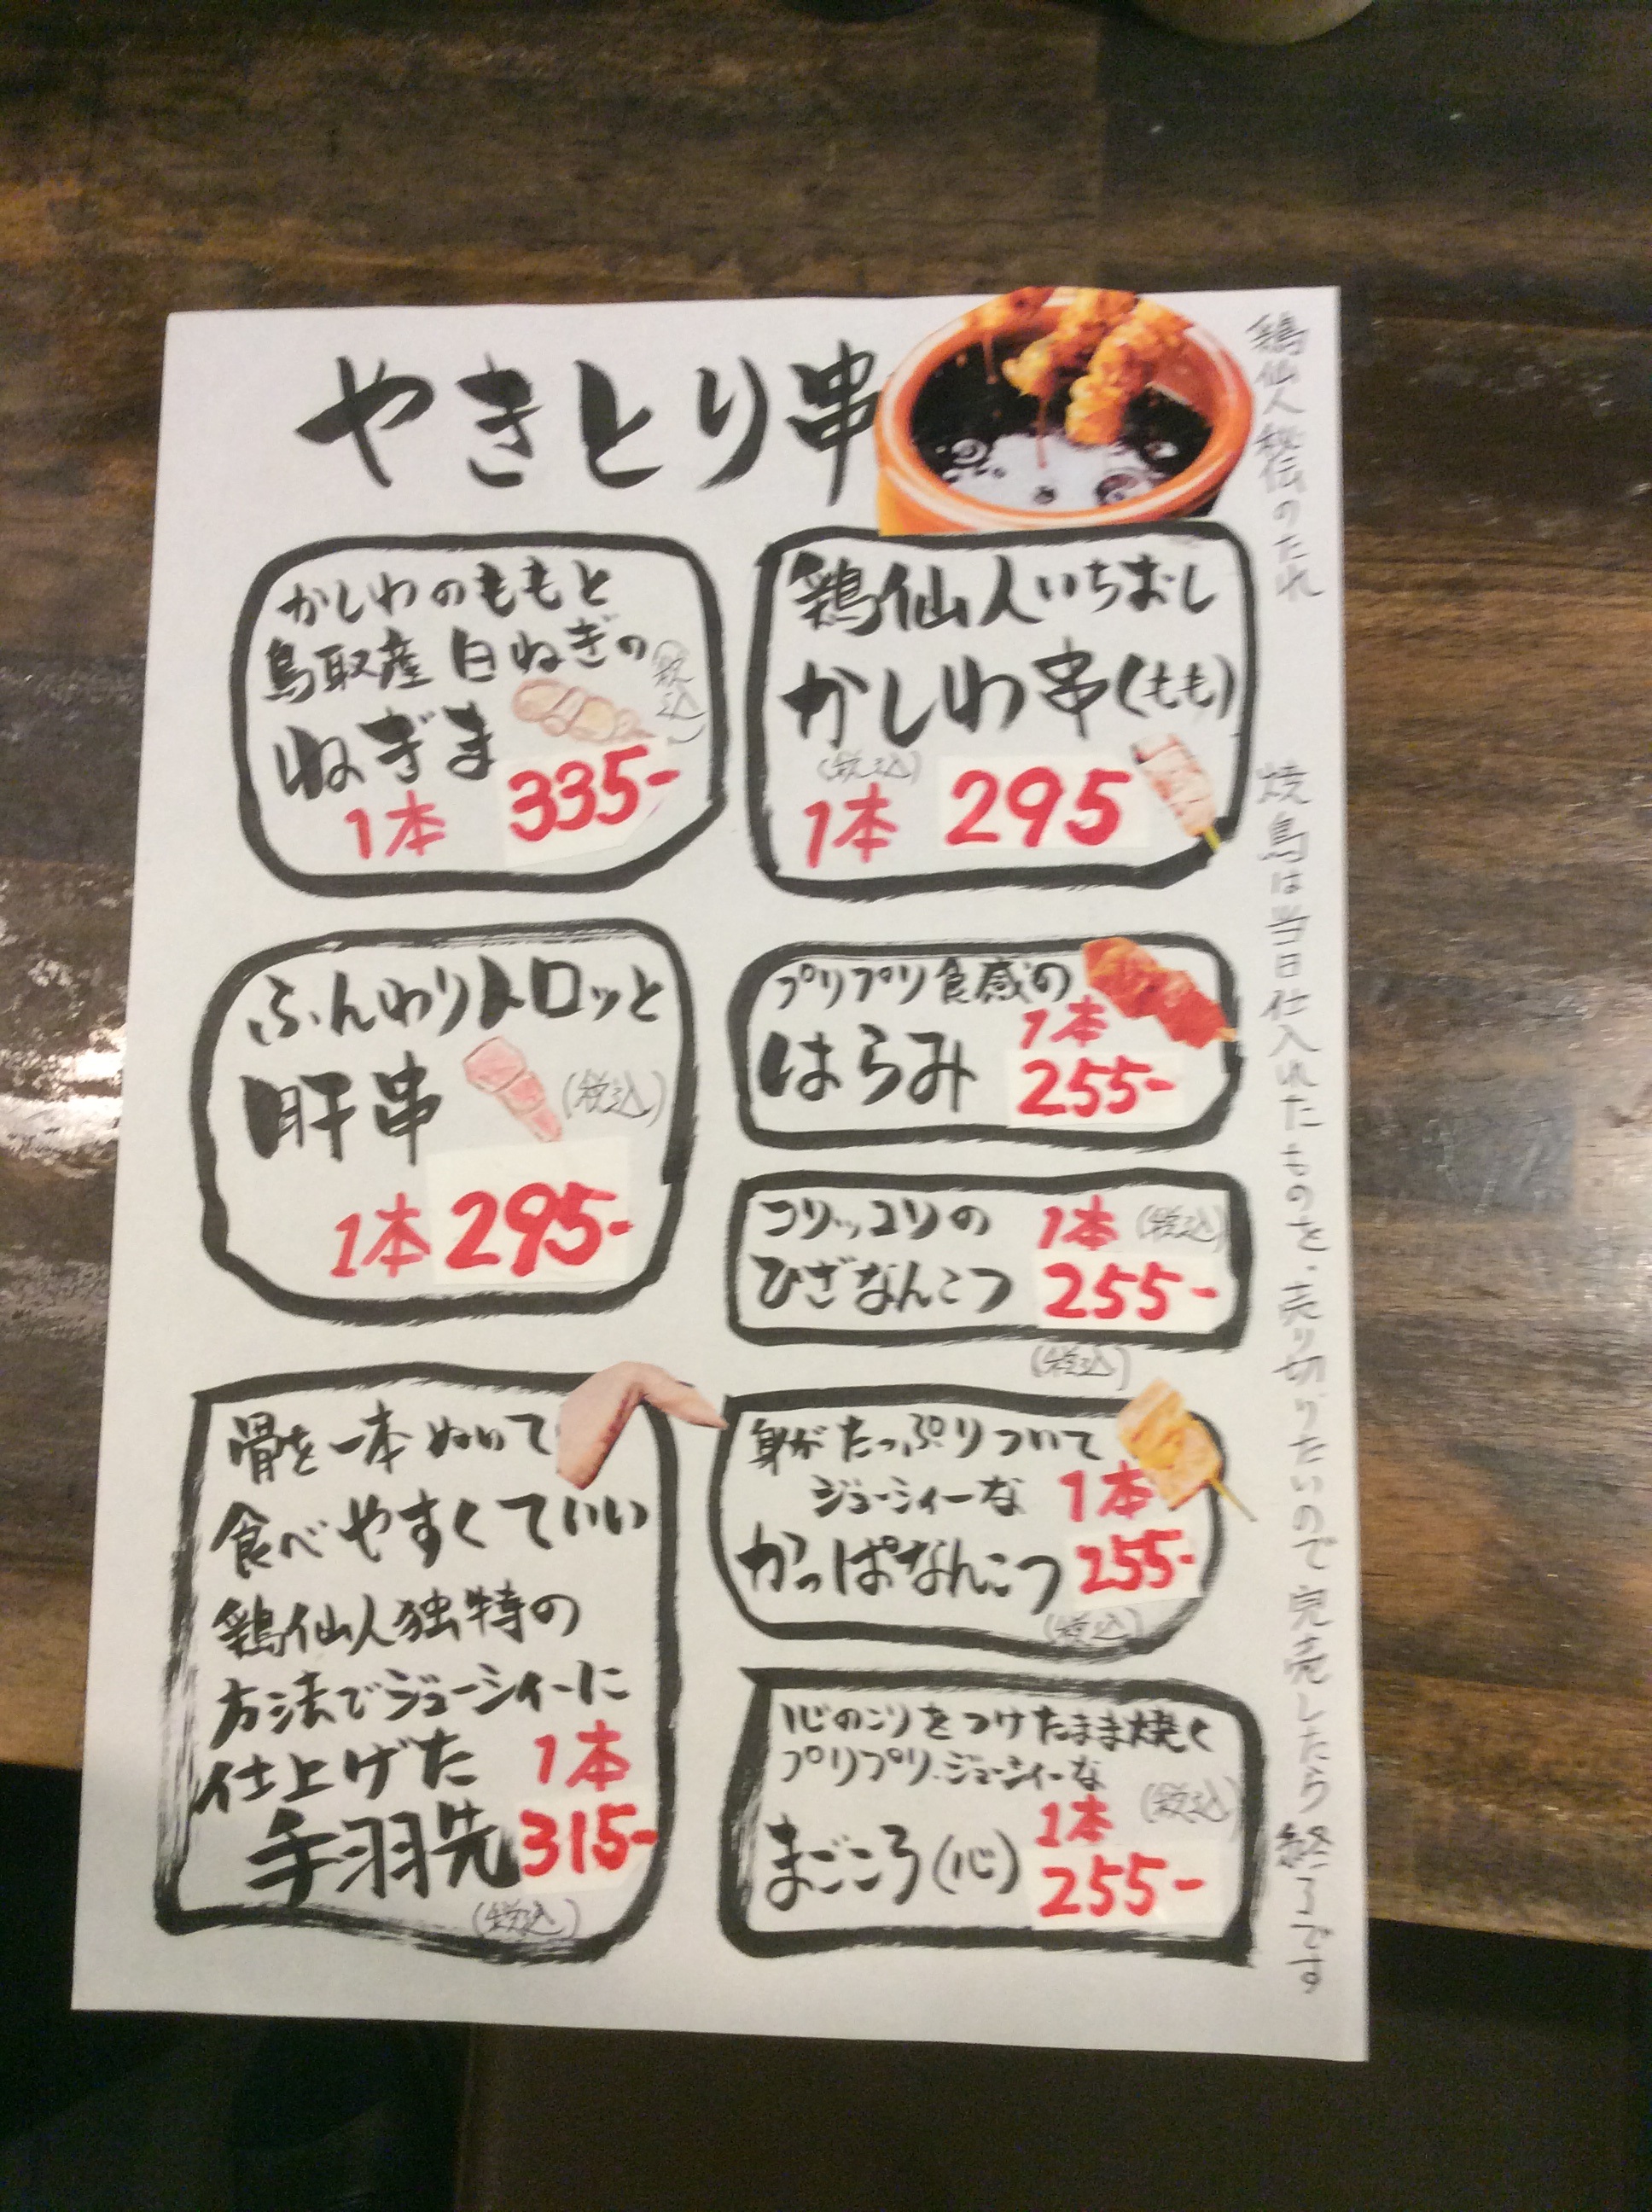 やきとり串
鶏仙人秘伝のたれ
焼鳥は当日仕入れたものを、売り切りたいので完売したら終了です
かしわのももと
鳥取産 白ねぎの
ねぎま
(税込)
1本 335-
鶏仙人いちおし
かしわ串(もも)
(税込)
1本 295
ふんわりトロッと
肝串
(税込)
1本 295-
プリプリ食感の
はらみ
1本
255-
コリッコリの
ひざなんこつ
1本 (税込)
255-
(税込)
骨を一本ぬいて
食べやすくていい
鶏仙人独特の
方法でジューシィーに
仕上げた 1本
手羽先 315-
(税込)
身がたっぷりついて
ジューシィーな 1本
かっぱなんこつ 255-
(税込)
心のこりをつけたまま焼く
プリプリ、ジューシィーな
(税込)
1本
まごころ(心) 255-